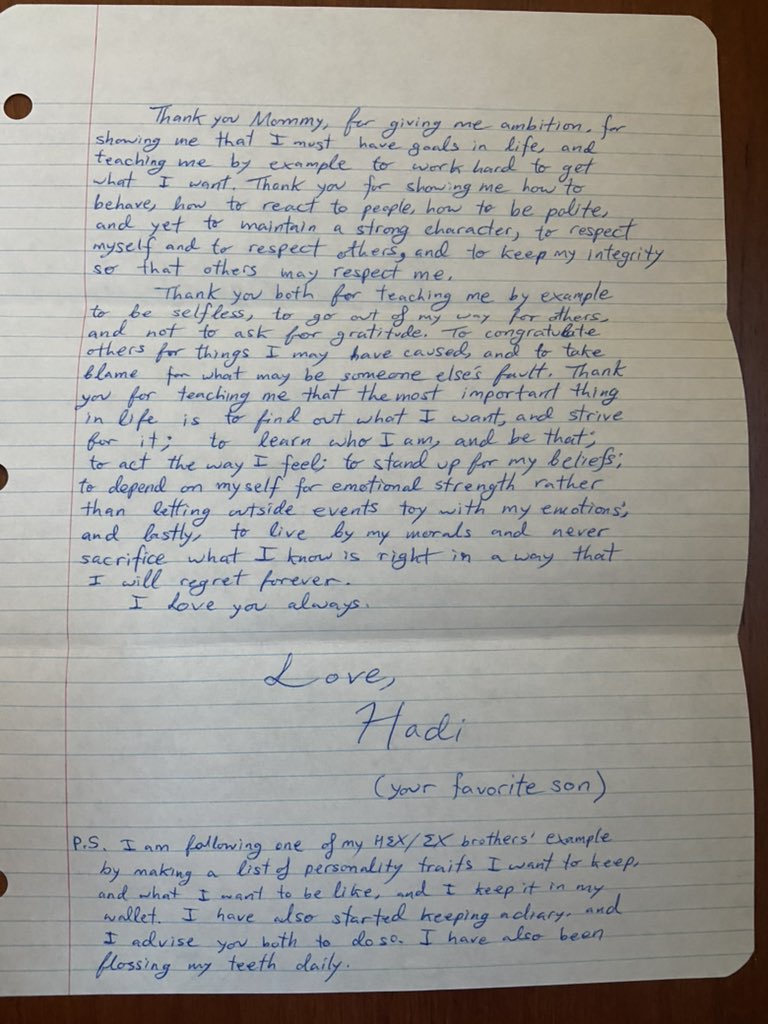 Thank you Mommy, for giving me ambition, for
showing me that I must have goals in life, and
teaching me by example to work hard to get
what I want. Thank you for showing me how to
behave, how to react to people, how to be polite,
and yet to maintain a strong character, to respect
myself and to respect others, and to keep my integrity
so that others may respect me.
Thank you both for teaching me by example
to be selfless, to go out of my way for others,
and not to ask for gratitude. To congratulate
others for things I may have caused, and to take
blame for what may be someone else's fault. Thank
you for teaching me that the most important thing
in life is to find out what I want, and strive
for it; to learn who I am, and be that;
to act the way I feel; to stand up for my beliefs;
to depend on myself for emotional strength rather
than letting outside events toy with my emotions;
and lastly, to live by my morals and never
sacrifice what I know is right in a way that
I will regret forever.
I love you always.
Love,
Hadi
(your favorite son)
P.S. I am following one of my HΣX/ΣX brothers' example
by making a list of personality traits I want to keep,
and what I want to be like, and I keep it in my
wallet. I have also started keeping a diary, and
I advise you both to do so. I have also been
flossing my teeth daily.